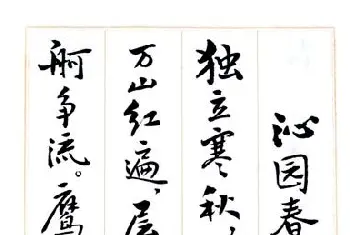 沁园春
独立寒秋，
万山红遍，层
舸争流。鹰